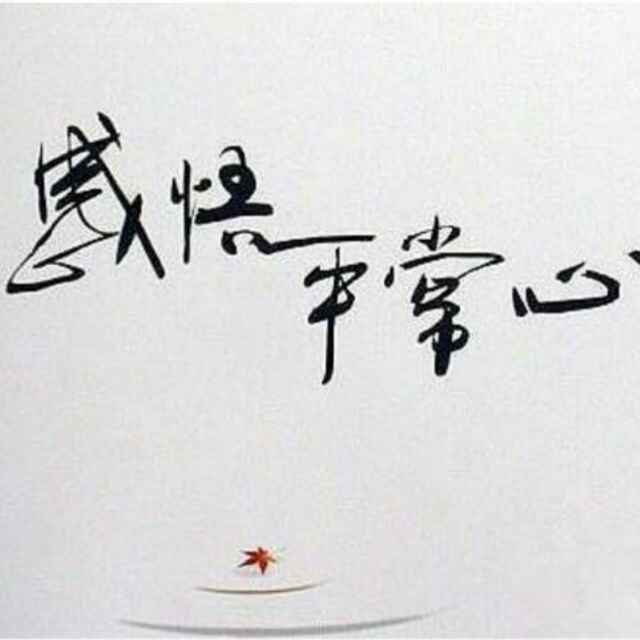 感悟平常心